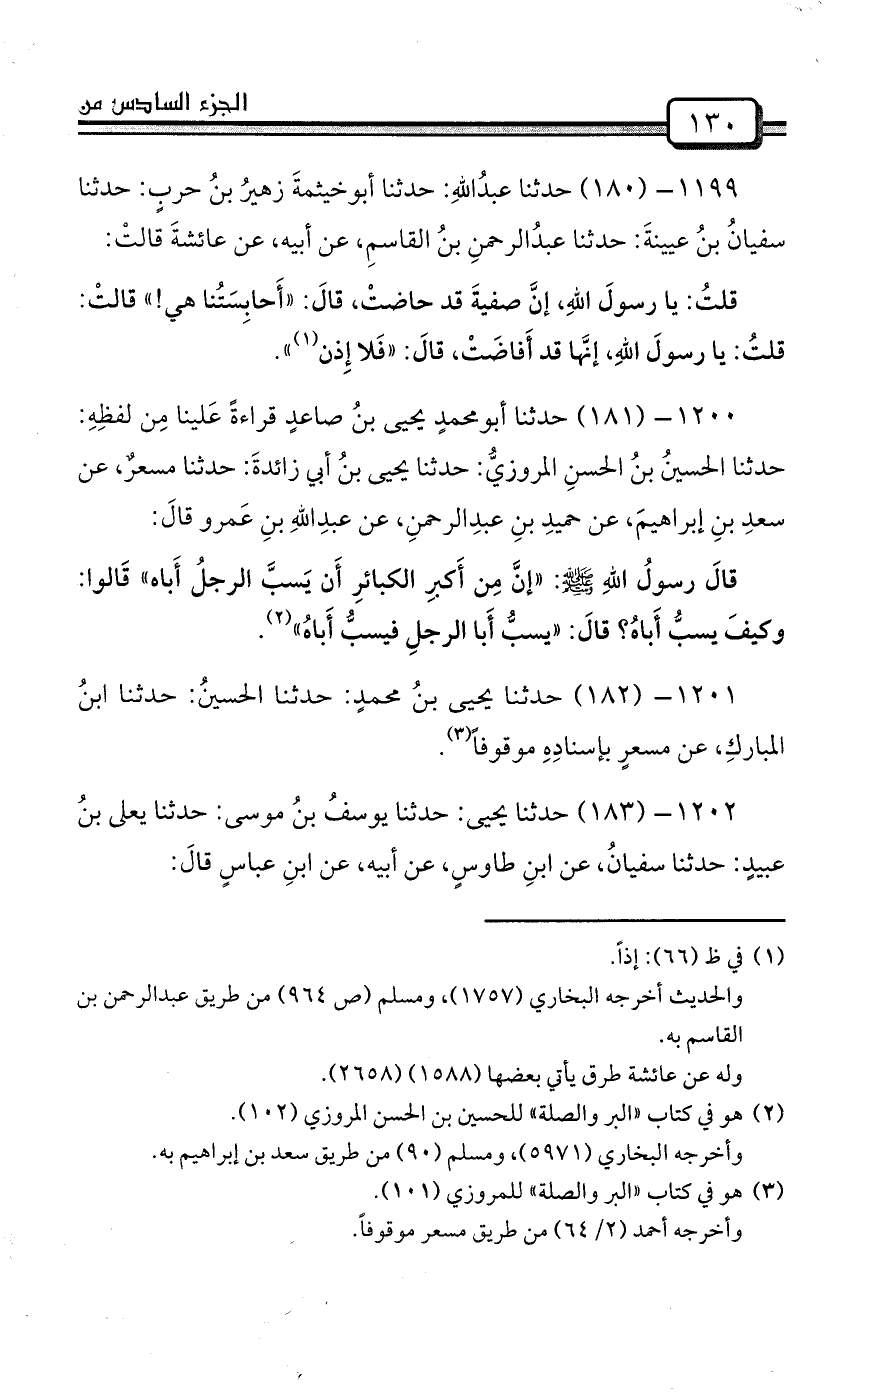 الجزء السادس من
١٣٠
١١٩٩- (١٨٠) حدثنا عبدُاللهِ: حدثنا أبوخيثمةَ زهيرُ بنُ حربٍ: حدثنا
سفيانُ بنُ عيينةَ: حدثنا عبدُالرحمنِ بنُ القاسمِ، عن أبيه، عن عائشةَ قالتْ:
قلتُ: يا رسولَ اللهِ، إنَّ صفيةَ قد حاضتْ، قالَ: «أَحابِسَتُنا هي!» قالتْ:
قلتُ: يا رسولَ اللهِ، إنَّها قد أَفاضَتْ، قالَ: «فَلا إِذن(١)».
١٢٠٠- (١٨١) حدثنا أبومحمدٍ يحيى بنُ صاعدٍ قراءةً عَلينا مِن لفظِهِ:
حدثنا الحسينُ بنُ الحسنِ المروزيُّ: حدثنا يحيى بنُ أبي زائدةَ: حدثنا مسعرٌ، عن
سعدِ بنِ إبراهيمَ، عن حميدِ بنِ عبدِالرحمنِ، عن عبدِاللهِ بنِ عَمرو قالَ:
قالَ رسولُ اللهِ ﷺ: «إنَّ مِن أَكبرِ الكبائرِ أَن يَسبَّ الرجلُ أَباه» قَالوا:
وكيفَ يسبُّ أَباهُ؟ قالَ: «يسبُّ أَبا الرجلِ فيسبُّ أَباهُ»(٢).
١٢٠١- (١٨٢) حدثنا يحيى بنُ محمدٍ: حدثنا الحسينُ: حدثنا ابنُ
المباركِ، عن مسعرٍ بإسنادِهِ موقوفاً(٣).
١٢٠٢- (١٨٣) حدثنا يحيى: حدثنا يوسفُ بنُ موسى: حدثنا يعلى بنُ
عبيدٍ: حدثنا سفيانُ، عن ابنِ طاوسٍ، عن أبيه، عن ابنِ عباسٍ قالَ:
(١) في ظ (٦٦): إذاً.
والحديث أخرجه البخاري (١٧٥٧)، ومسلم (ص ٩٦٤) من طريق عبدالرحمن بن
القاسم به.
وله عن عائشة طرق يأتي بعضها (١٥٨٨) (٢٦٥٨).
(٢) هو في كتاب «البر والصلة» للحسين بن الحسن المروزي (١٠٢).
وأخرجه البخاري (٥٩٧١)، ومسلم (٩٠) من طريق سعد بن إبراهيم به.
(٣) هو في كتاب «البر والصلة» للمروزي (١٠١).
وأخرجه أحمد (٢/ ٦٤) من طريق مسعر موقوفاً.